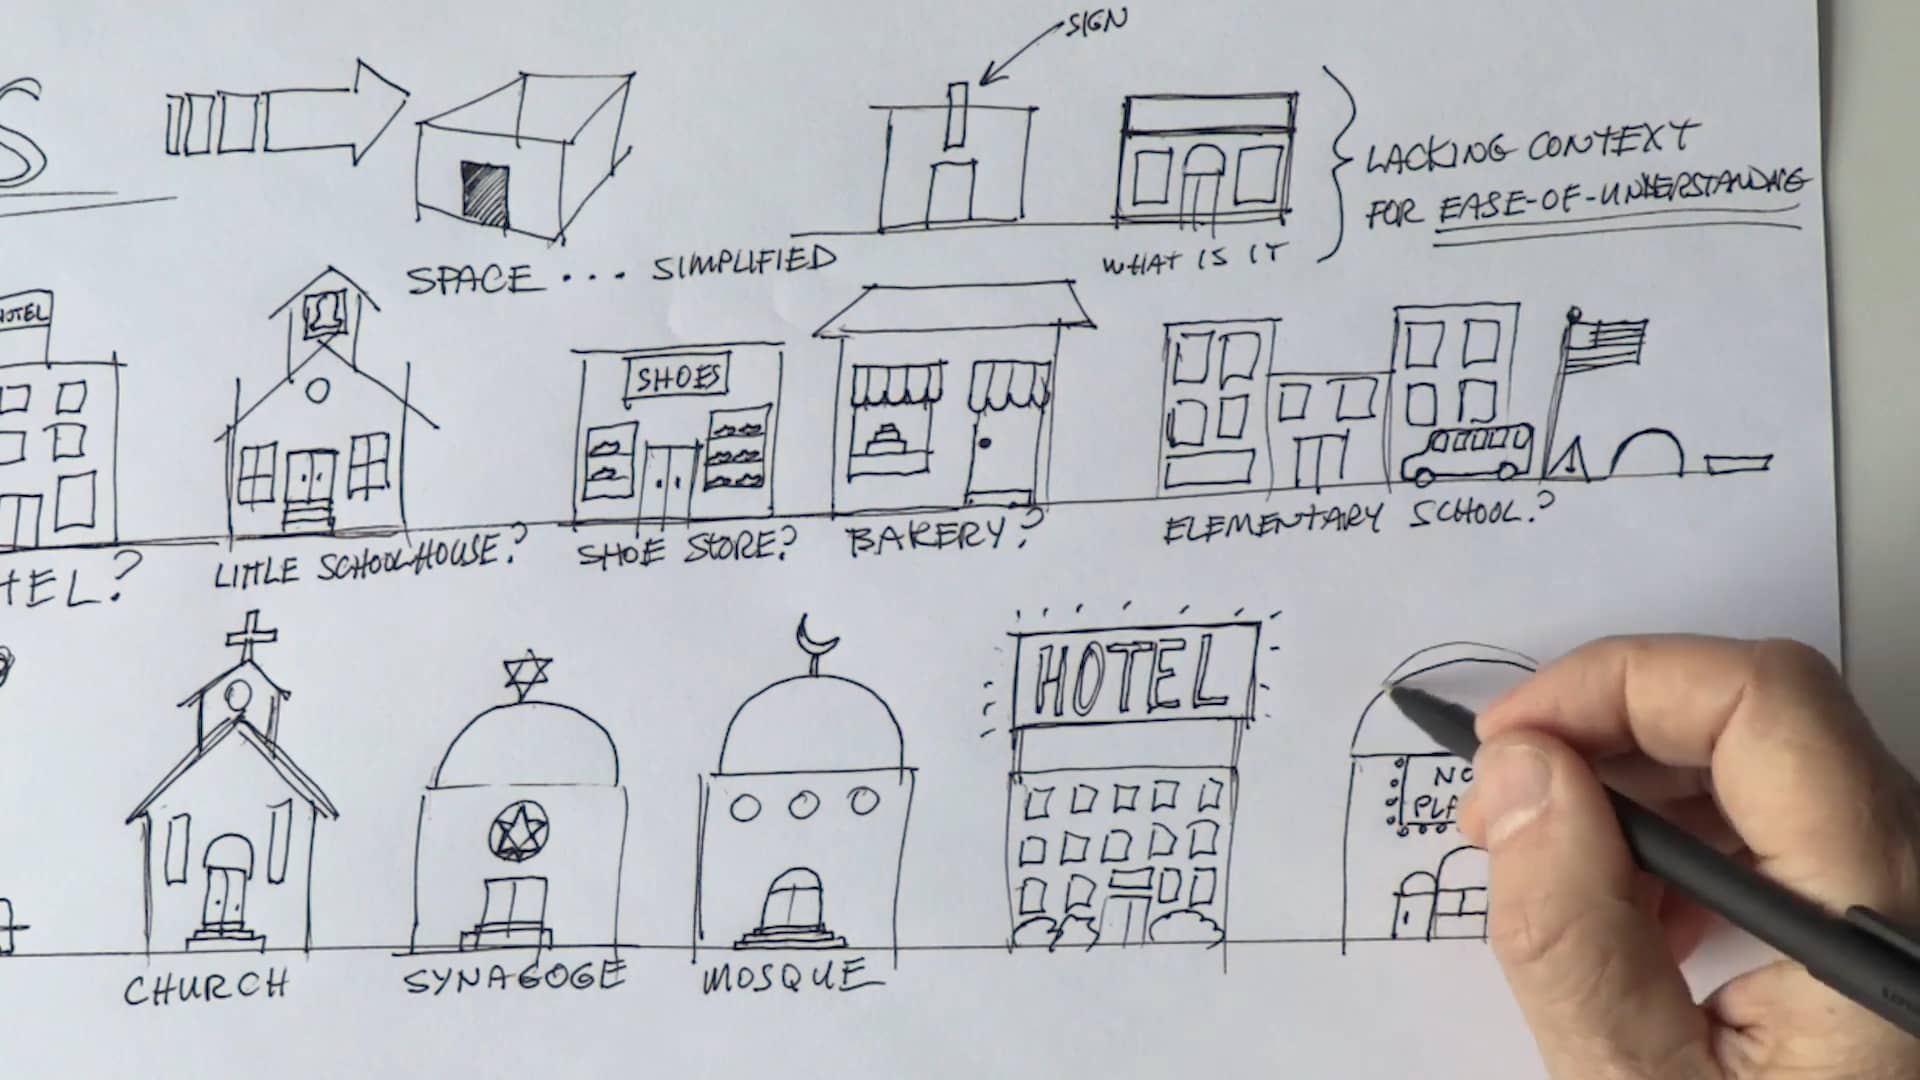 S
SIGN
LACKING CONTEXT
FOR EASE-OF-UNDERSTANDING
SPACE ... SIMPLIFIED
WHAT IS IT
HOTEL
SHOES
TEL?
LITTLE SCHOOLHOUSE?
SHOE STORE?
BAKERY?
ELEMENTARY SCHOOL?
HOTEL
NO
PLA
CHURCH
SYNAGOGE
MOSQUE